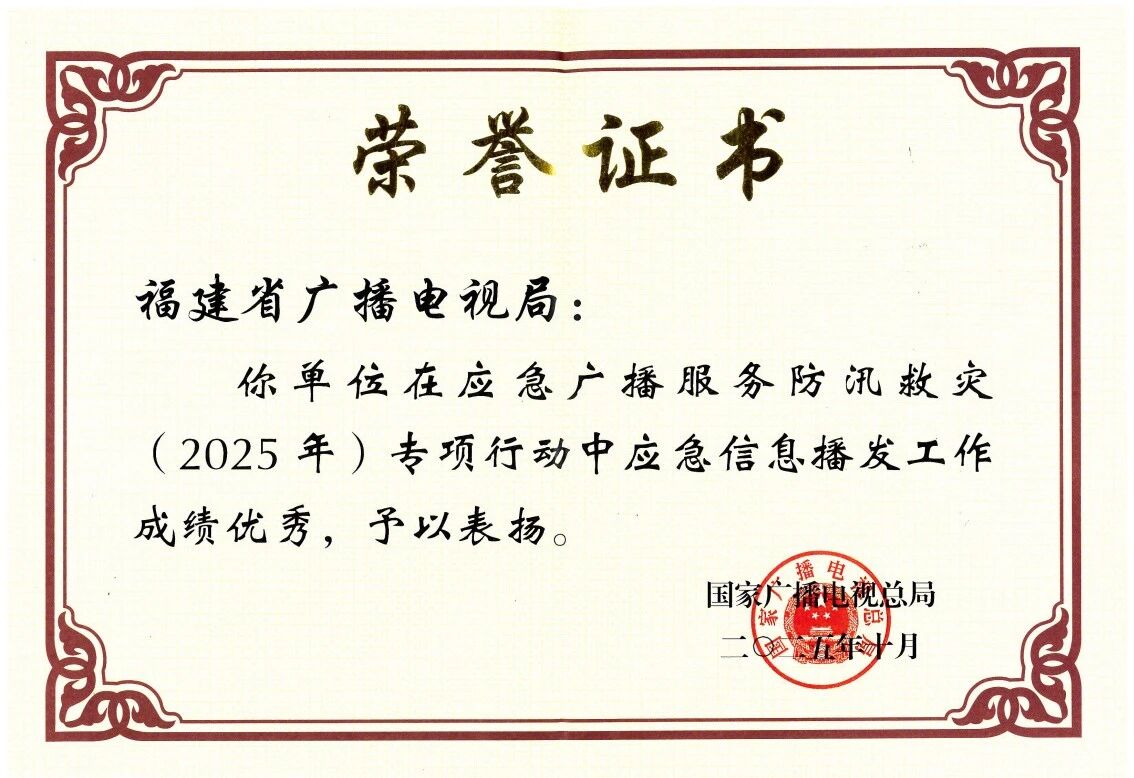 荣誉证书
福建省广播电视局：
你单位在应急广播服务防汛救灾
（2025年）专项行动中应急信息播发工作
成绩优秀，予以表扬。
国家广播电视总局
二〇二五年十月
国家广播电视总局